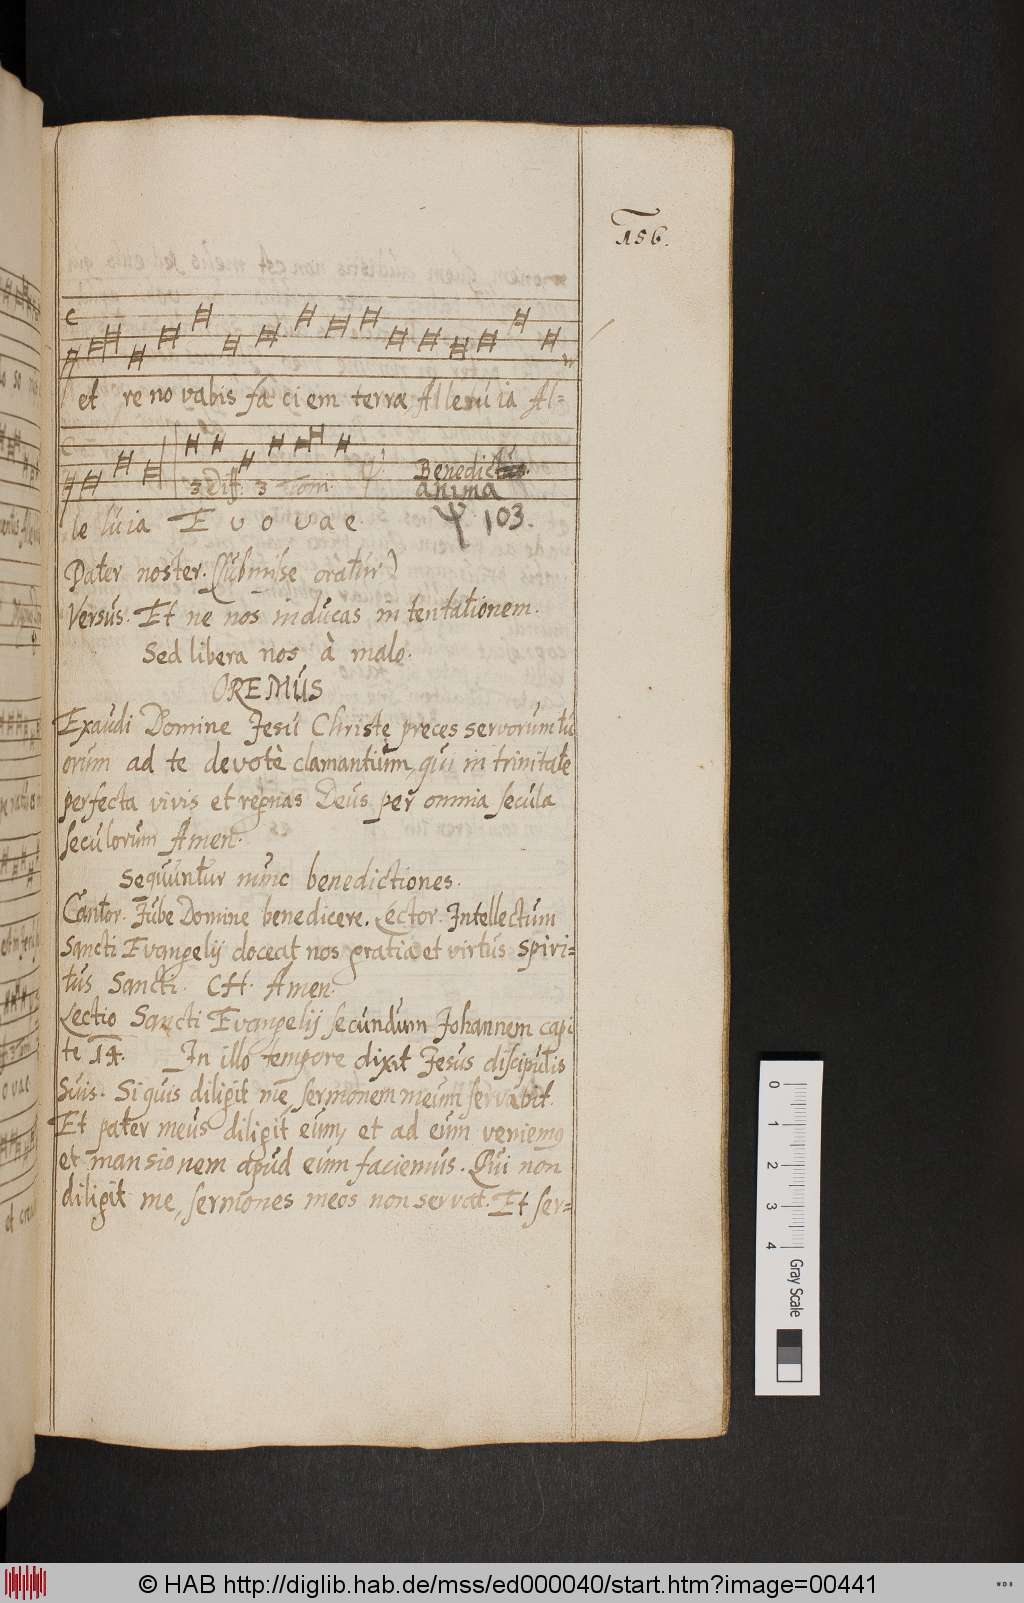 156.
et re no vabis fa ci em terra Al le lu ia Al-
3 Diff. 3 Tom. Ψ. Benedic
anima
le lu ia E v o v a e. Ψ 103.
Pater noster. (submisse oratur)
Versus. Et ne nos inducas in tentationem.
Sed libera nos à malo.
OREMUS
Exaudi Domine Jesu Christe preces servorum tu
orum ad te devotè clamantium, qui in trinitate
perfecta vivis et regnas Deus per omnia secula
seculorum Amen.
Sequuntur nunc benedictiones.
Cantor. Jube Domine benedicere. Lector. Intellectum
Sancti Evangelij doceat nos gratia et virtus Spiri=
tus Sancti. CH. Amen.
Lectio Sancti Evangelij secundum Johannem capi
te 14. In illo tempore dixit Jesus discipulis
suis. Si quis diligit me, sermonem meum servabit.
Et pater meus diligit eum, et ad eum veniemus
et mansionem apud eum faciemus. Qui non
diligit me, sermones meos non servat. Et ser=
0 1 2 3 4 Gray Scale
© HAB http://diglib.hab.de/mss/ed000040/start.htm?image=00441